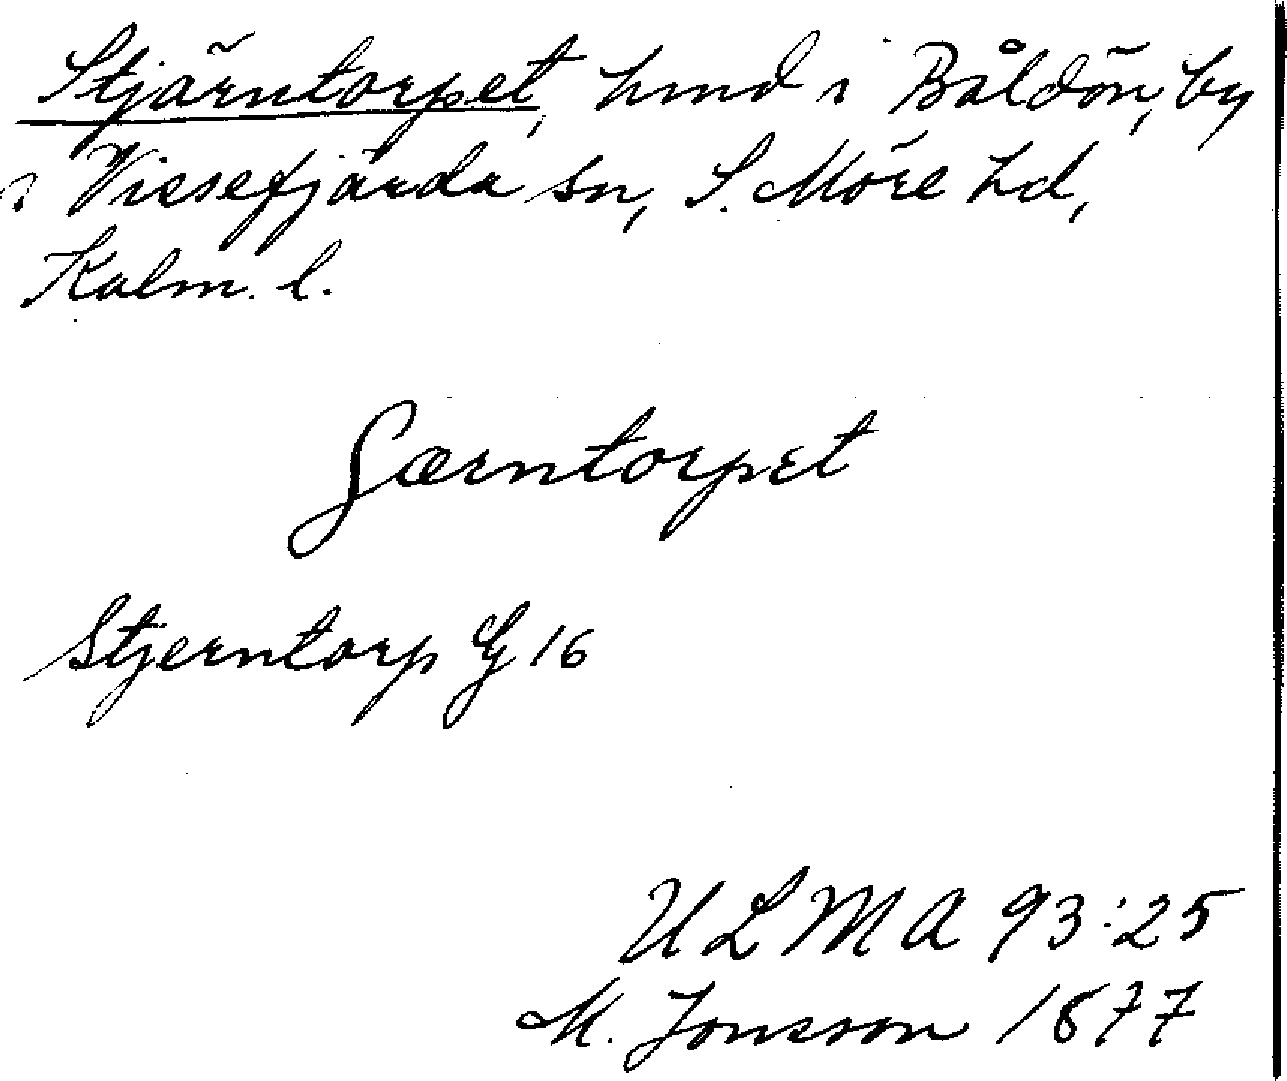 Stjärntorpet, hmd i Båldön, by
i Vissefjärda sn, S. Möre hd,
Kalm. l.
Særntorpet
Stjerntorp G 16
ULMA 93:25
M. Jonsson 1877